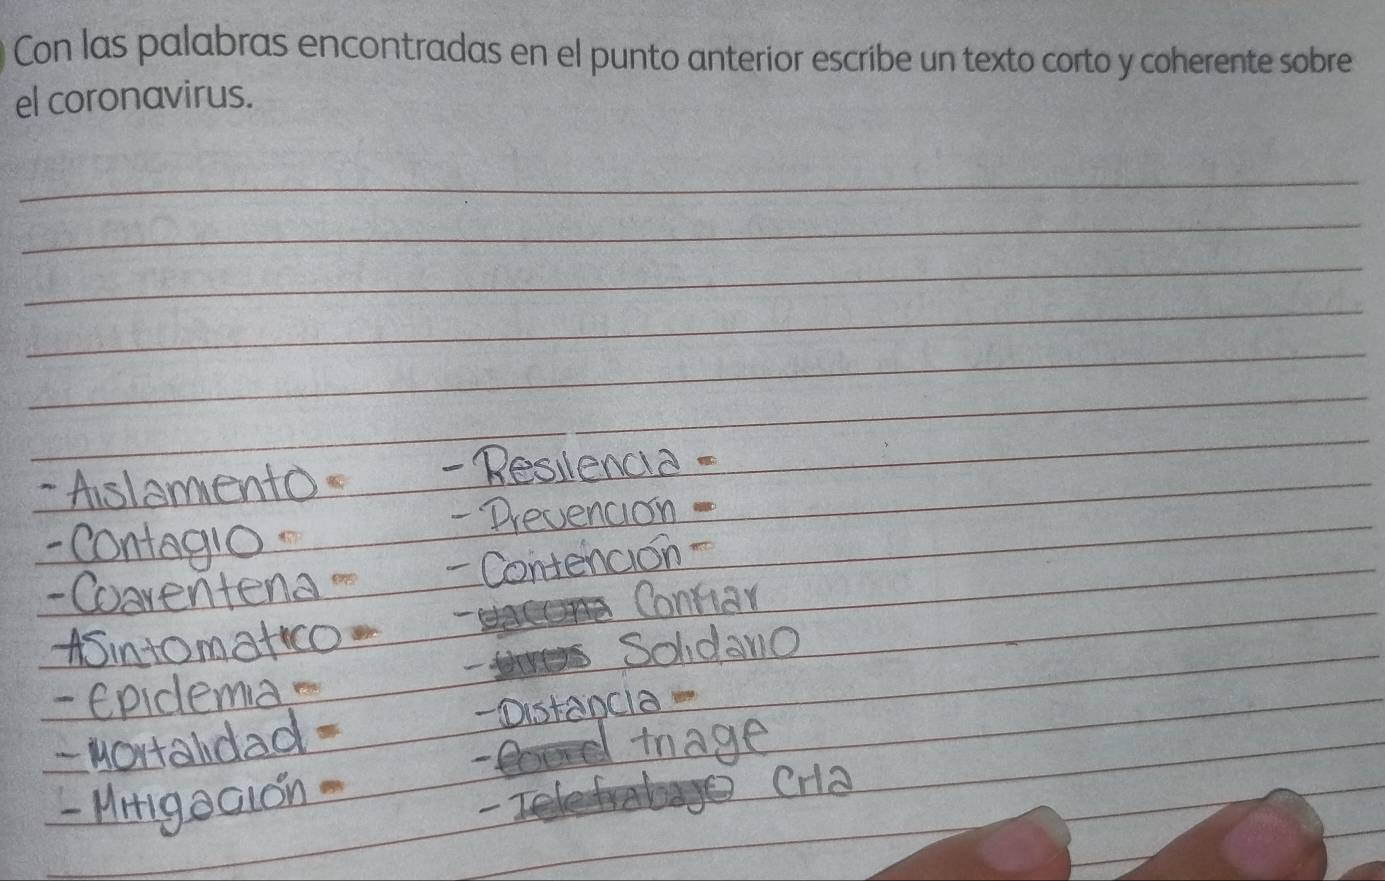 Con las palabras encontradas en el punto anterior escribe un texto corto y coherente sobre
el coronavirus.
- Aislamiento -
- Contagio -
- Coarentena -
Asintomatico -
- Epidemia -
- Mortalidad -
- Mitigación -
- Resilencia -
- Prevención -
- Contención -
- vacuna Confiar
- virus Solidario
- Distancia -
- triage
- Teletrabajo Cria